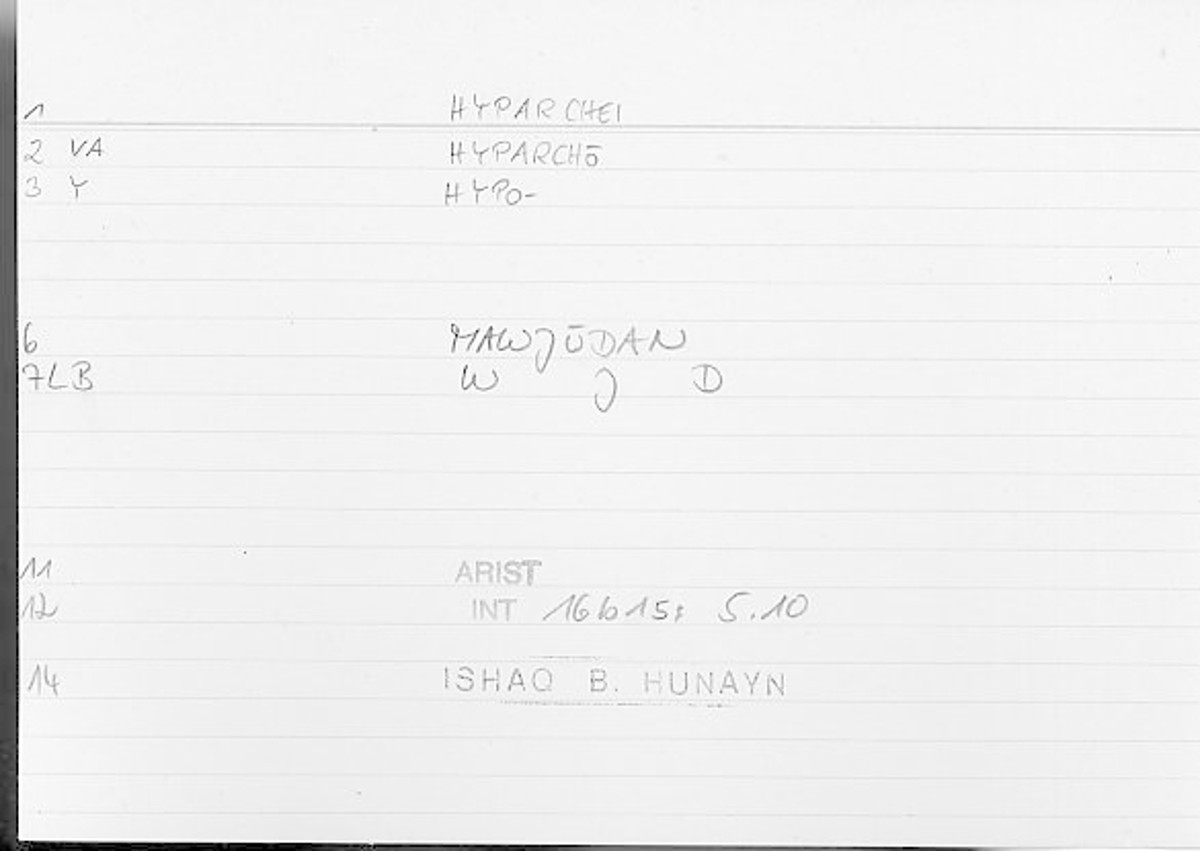 1 HYPARCHEI
2 VA HYPARCHŌ
3 Y HYPO-
6 MAWJŪDAN
7LB W J D
11 ARIST
12 INT 16b15; 5.10
14 ISHAQ B. HUNAYN